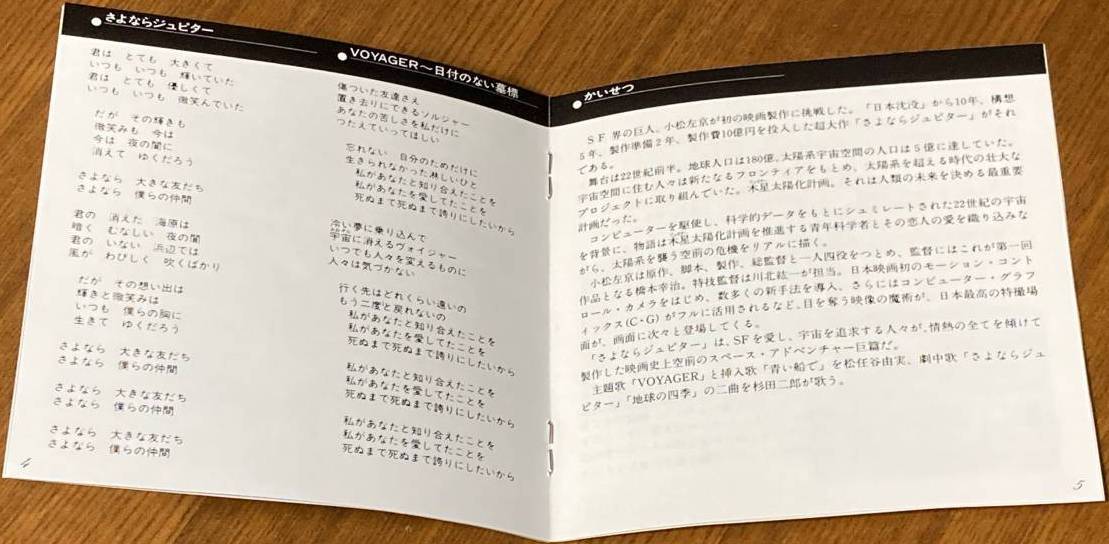 さよならジュピター
君は とても 大きくて
いつも いつも 輝いていた
君は とても 優しくて
いつも いつも 微笑んでいた
だが その輝きも
微笑みも 今は
今は 夜の闇に
消えて ゆくだろう
さよなら 大きな友だち
さよなら 僕らの仲間
君の 消えた 海原は
暗く むなしい 夜の闇
君の いない 浜辺では
風が わびしく 吹くばかり
だが その想い出は
輝きと微笑みは
いつも 僕らの胸に
生きて ゆくだろう
さよなら 大きな友だち
さよなら 僕らの仲間
さよなら 大きな友だち
さよなら 僕らの仲間
さよなら 大きな友だち
さよなら 僕らの仲間
4
VOYAGER〜日付のない墓標
傷ついた友達さえ
置き去りにできるソルジャー
あなたの苦しさを私だけに
つたえていってほしい
忘れない 自分のためだけに
生きられなかった淋しいひと
私があなたと知り合えたことを
私があなたを愛してたことを
死ぬまで死ぬまで誇りにしたいから
冷い夢に乗り込んで
宇宙に消えるヴォイジャー
いつでも人々を変えるものに
人々は気づかない
行く先はどれくらい遠いの
もう二度と戻れないの
私があなたと知り合えたことを
私があなたを愛してたことを
死ぬまで死ぬまで誇りにしたいから
私があなたと知り合えたことを
私があなたを愛してたことを
死ぬまで死ぬまで誇りにしたいから
私があなたと知り合えたことを
私があなたを愛してたことを
死ぬまで死ぬまで誇りにしたいから
かいせつ
SF界の巨人、小松左京が初の映画製作に挑戦した。「日本沈没」から10年、構想
5年、製作準備2年、製作費10億円を投入した超大作「さよならジュピター」がそれ
である。
舞台は22世紀前半。地球人口は180億、太陽系宇宙空間の人口は5億に達していた。
宇宙空間に住む人々は新たなるフロンティアをもとめ、太陽系を超える時代の壮大な
プロジェクトに取り組んでいた。木星太陽化計画。それは人類の未来を決める最重要
計画だった。
コンピューターを駆使し、科学的データをもとにシュミレートされた22世紀の宇宙
を背景に、物語は木星太陽化計画を推進する青年科学者とその恋人の愛を織り込みな
がら、太陽系を襲う空前の危機をリアルに描く。
小松左京は原作、脚本、製作、総監督と一人四役をつとめ、監督にはこれが第一回
作品となる橋本幸治。特技監督は川北紘一が担当。日本映画初のモーション・コント
ロール・カメラをはじめ、数多くの新手法を導入、さらにはコンピューター・グラフ
ィックス(C・G)がフルに活用されるなど、目を奪う映像の魔術が、日本最高の特撮場
面が、画面に次々と登場してくる。
「さよならジュピター」は、SFを愛し、宇宙を追求する人々が、情熱の全てを傾けて
製作した映画史上空前のスペース・アドベンチャー巨篇だ。
主題歌「VOYAGER」と挿入歌「青い船で」を松任谷由実、劇中歌「さよならジュ
ピター」「地球の四季」の二曲を杉田二郎が歌う。
5